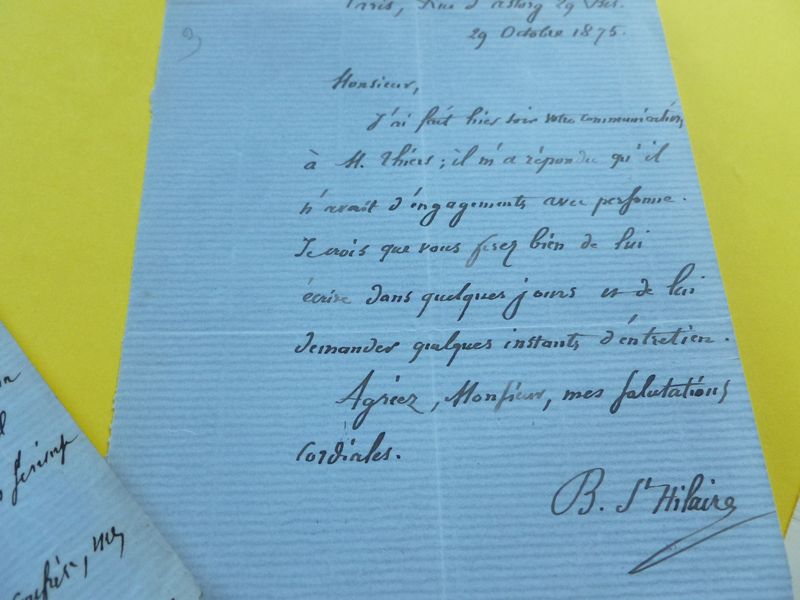 Paris, Rue d'astorg 29 bis.
29 Octobre 1875.
Monsieur,
J'ai fait hier soir votre communication
à M. Thiers; il m'a répondu qu'il
n'avait d'éngagements avec personne.
Je crois que vous ferez bien de lui
écrire dans quelques jours et de lui
demander quelques instants d'éntretien.
Agréez, Monsieur, mes salutations
Cordiales.
B. St Hilaire